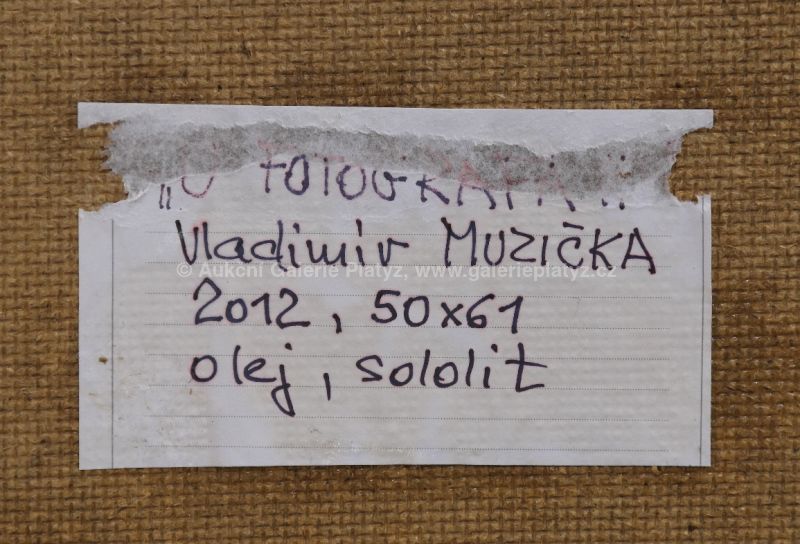 „U FOTOGRAFA"
Vladimir MUZIČKA
© Aukční Galerie Platýz, www.galerieplatyz.cz
2012, 50x61
olej, sololit